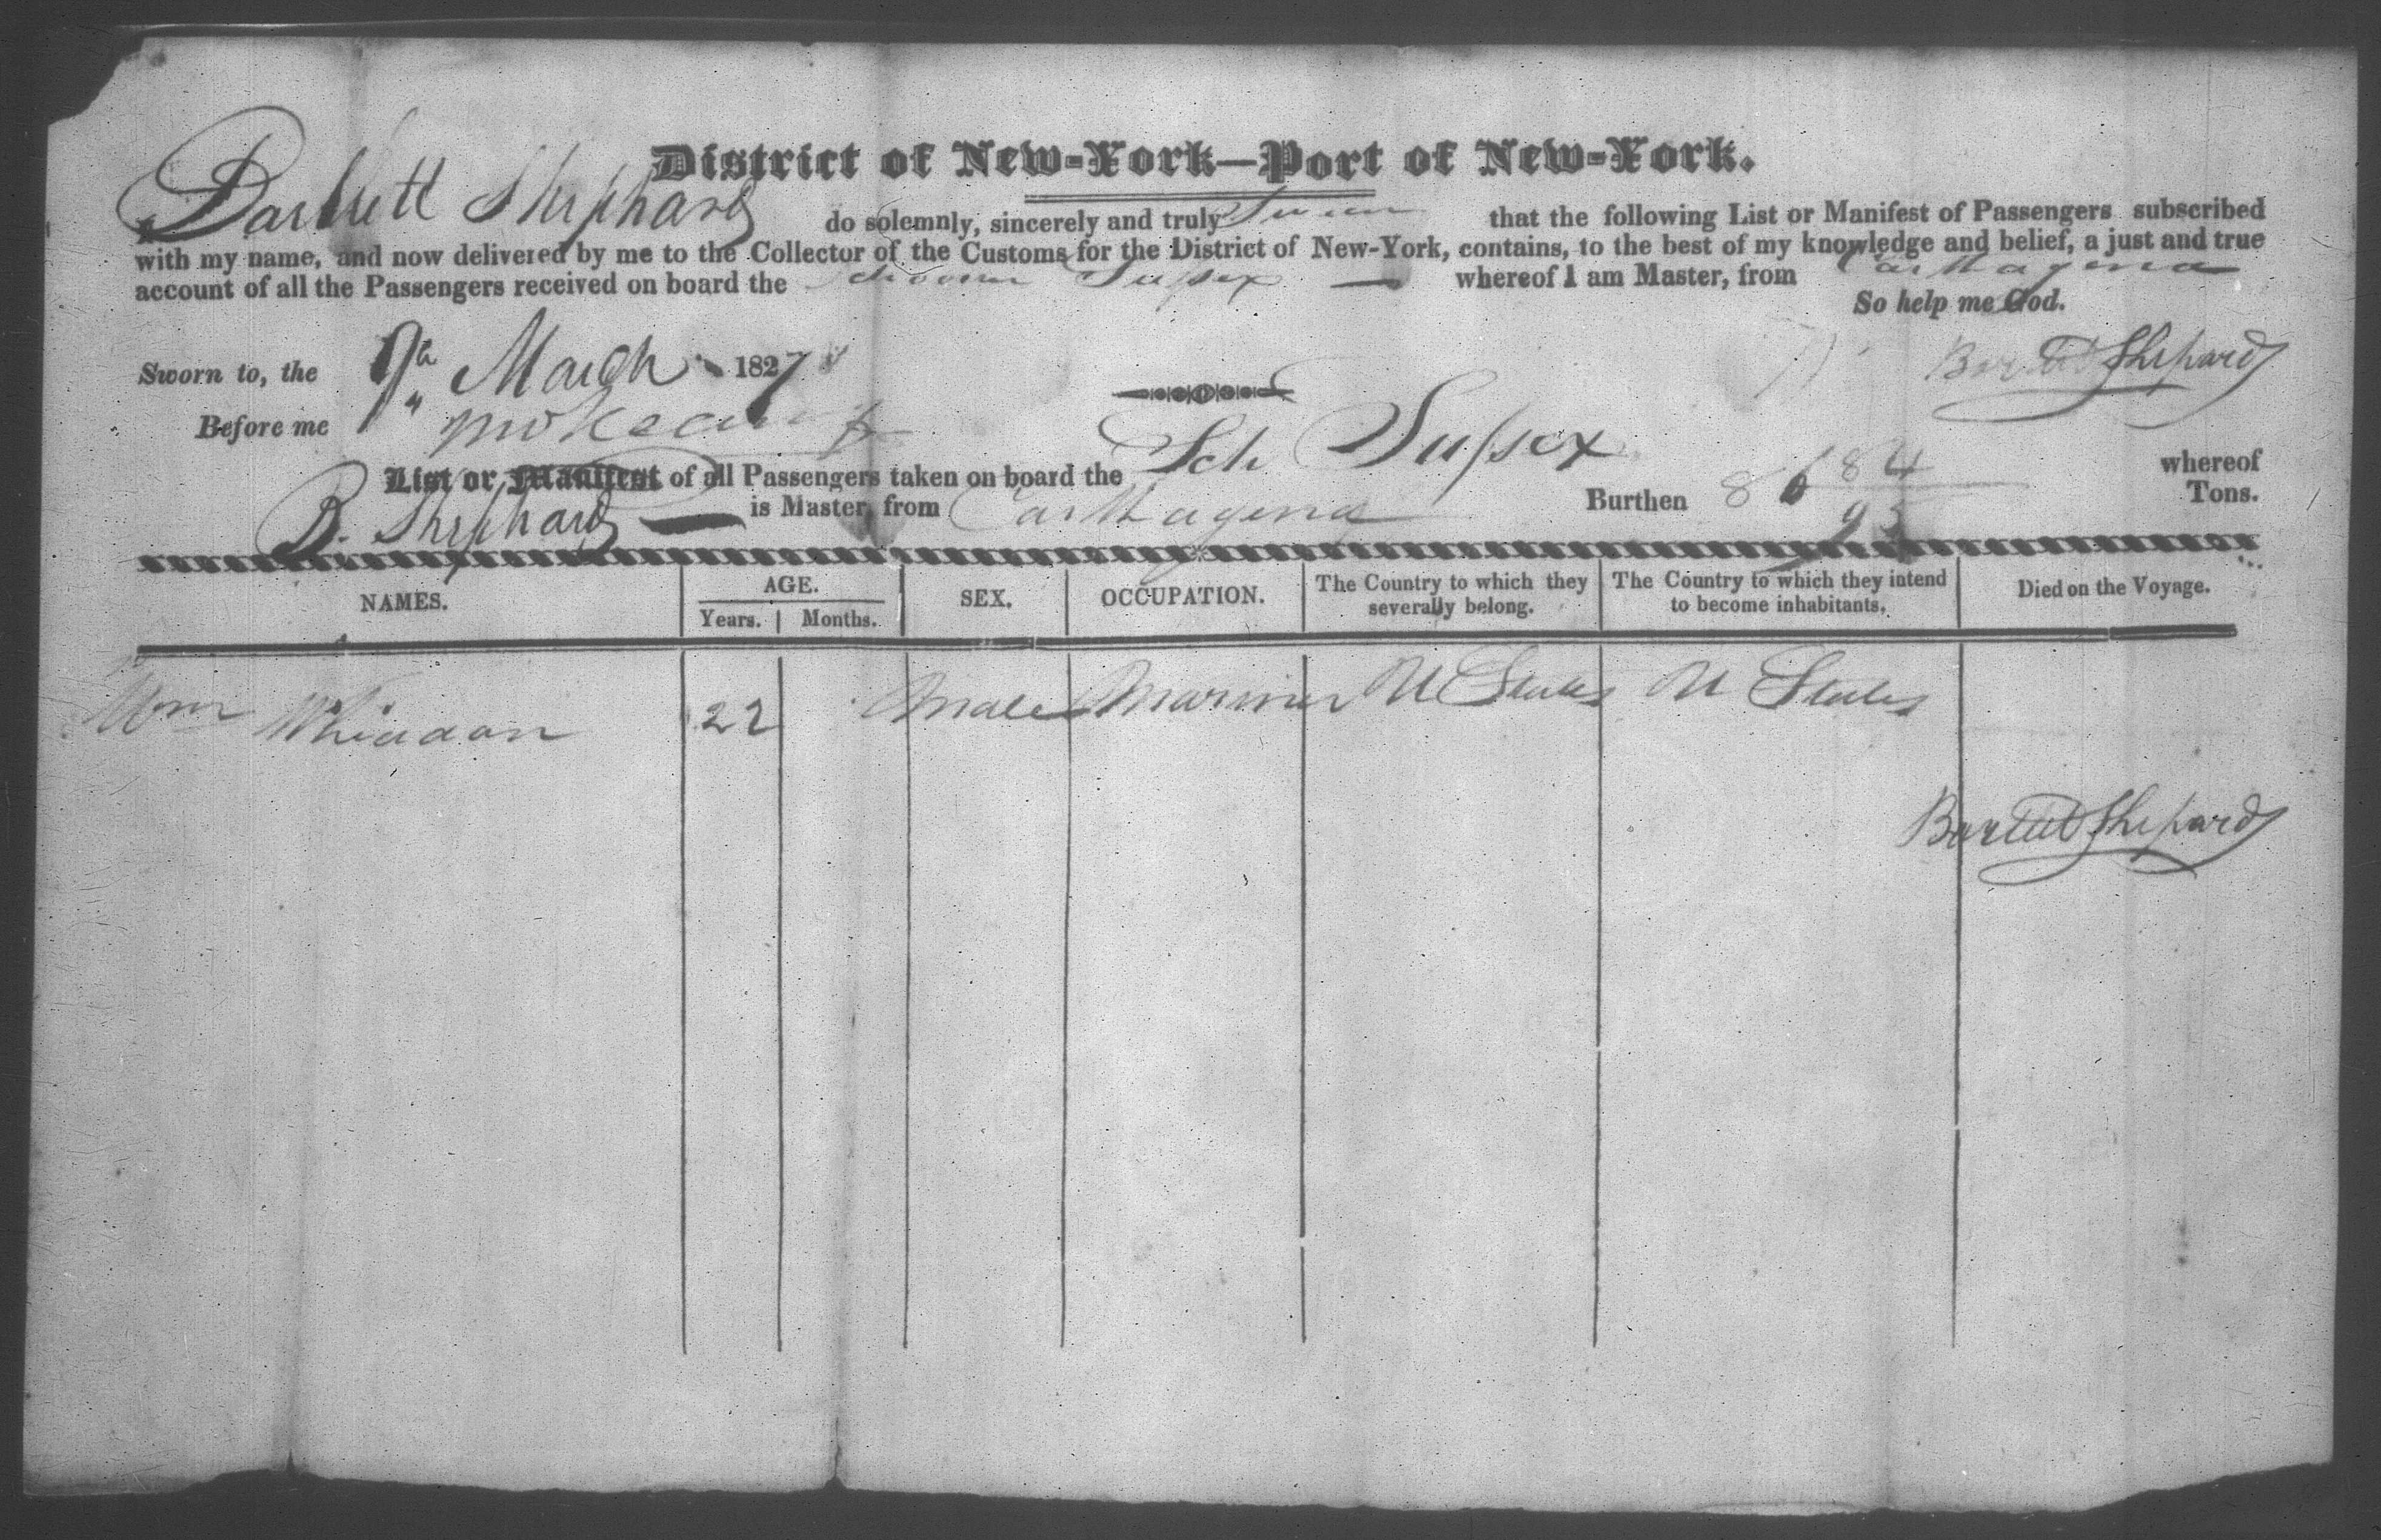 District of New-York—Port of New-York.
I, Bartlett Shephard do solemnly, sincerely and truly Swear that the following List or Manifest of Passengers subscribed
with my name, and now delivered by me to the Collector of the Customs for the District of New-York, contains, to the best of my knowledge and belief, a just and true
account of all the Passengers received on board the Schooner Sussex — whereof I am Master, from Carthagena
So help me God.
Sworn to, the 9th March 1827
Bartlett Shepard
Before me
List or Manifest of all Passengers taken on board the Sch Sussex whereof
B. Shephard — is Master, from Carthagena Burthen 86 84/95 Tons.
NAMES. AGE. SEX. OCCUPATION. The Country to which they severally belong. The Country to which they intend to become inhabitants. Died on the Voyage.
Years. Months.
Wm Whiddon 22 Male Mariner U States U States
Bartlett Shepard